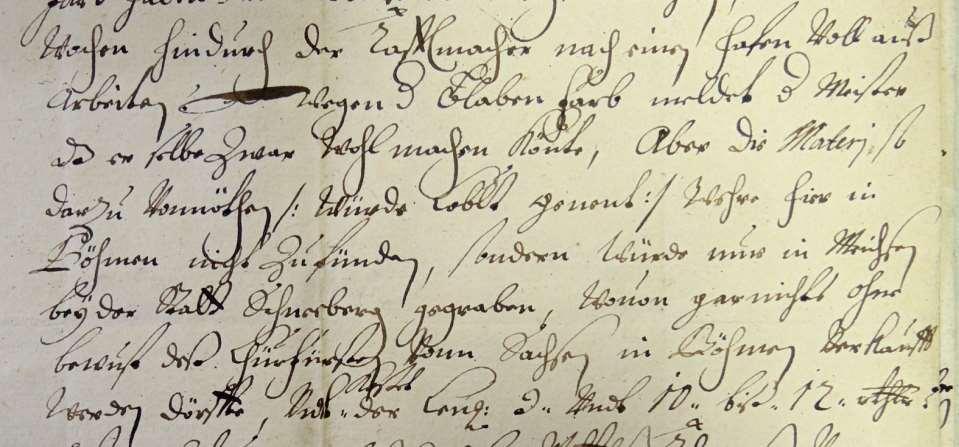 Wochen hindurch der Castlmacher nach einen hafen Voll auß
Arbeiten Wegen d Blaben farb meldet d Meister
dz er selbe Zwar Wohl machen Könte, Aber die Materj, so
darzu Vonnöthen /: Würde Cobolt genent :/ Wehre hier in
Böhmen nicht Zufünden, sondern Würde nur in Meichsen
bey der Statt Schneeberg gegraben, Wouon gar nichts ohne
bewust deß Churfürsten Vonn Sachsen in Böhmen Verkaufft
Kostet
Werden dörffte, der d. Vmb 10 biß 12